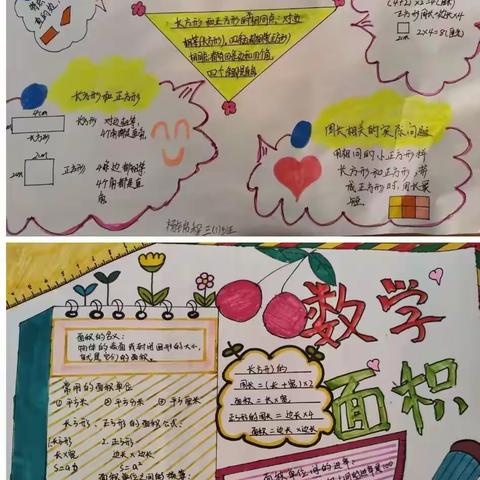 (4+2)×2
正方形周长=边长×4
2cm
2×4=8(厘米)
长方形和正方形的相同点:对边
相等(长方形),四边相等(正方形)
四个角都是直角
长方形和正方形
4cm
长方形
长方形 对边相等,
4个角都是直角
2cm
2cm
正方形
4条边都相等
4个角都是直
角
周长相关的实际问题
用相同的小正方形拼
长方形和正方形,拼
成正方形时,周长最
短
三(1)班
数学
面积
面积的含义:
物体的表面或封闭图形的大小,
就是它们的面积。
常用的面积单位
①平方米 ②平方分米 ③平方厘米
长方形、正方形的面积公式:
1.长方形 2.正方形
长×宽 边长×边长
S=ab S=a²
面积单位之间的换算:
长方形的
周长=(长+宽)×2
面积=长×宽
正方形的周长=边长×4
面积=边长×边长
面积单位间的进率:
100